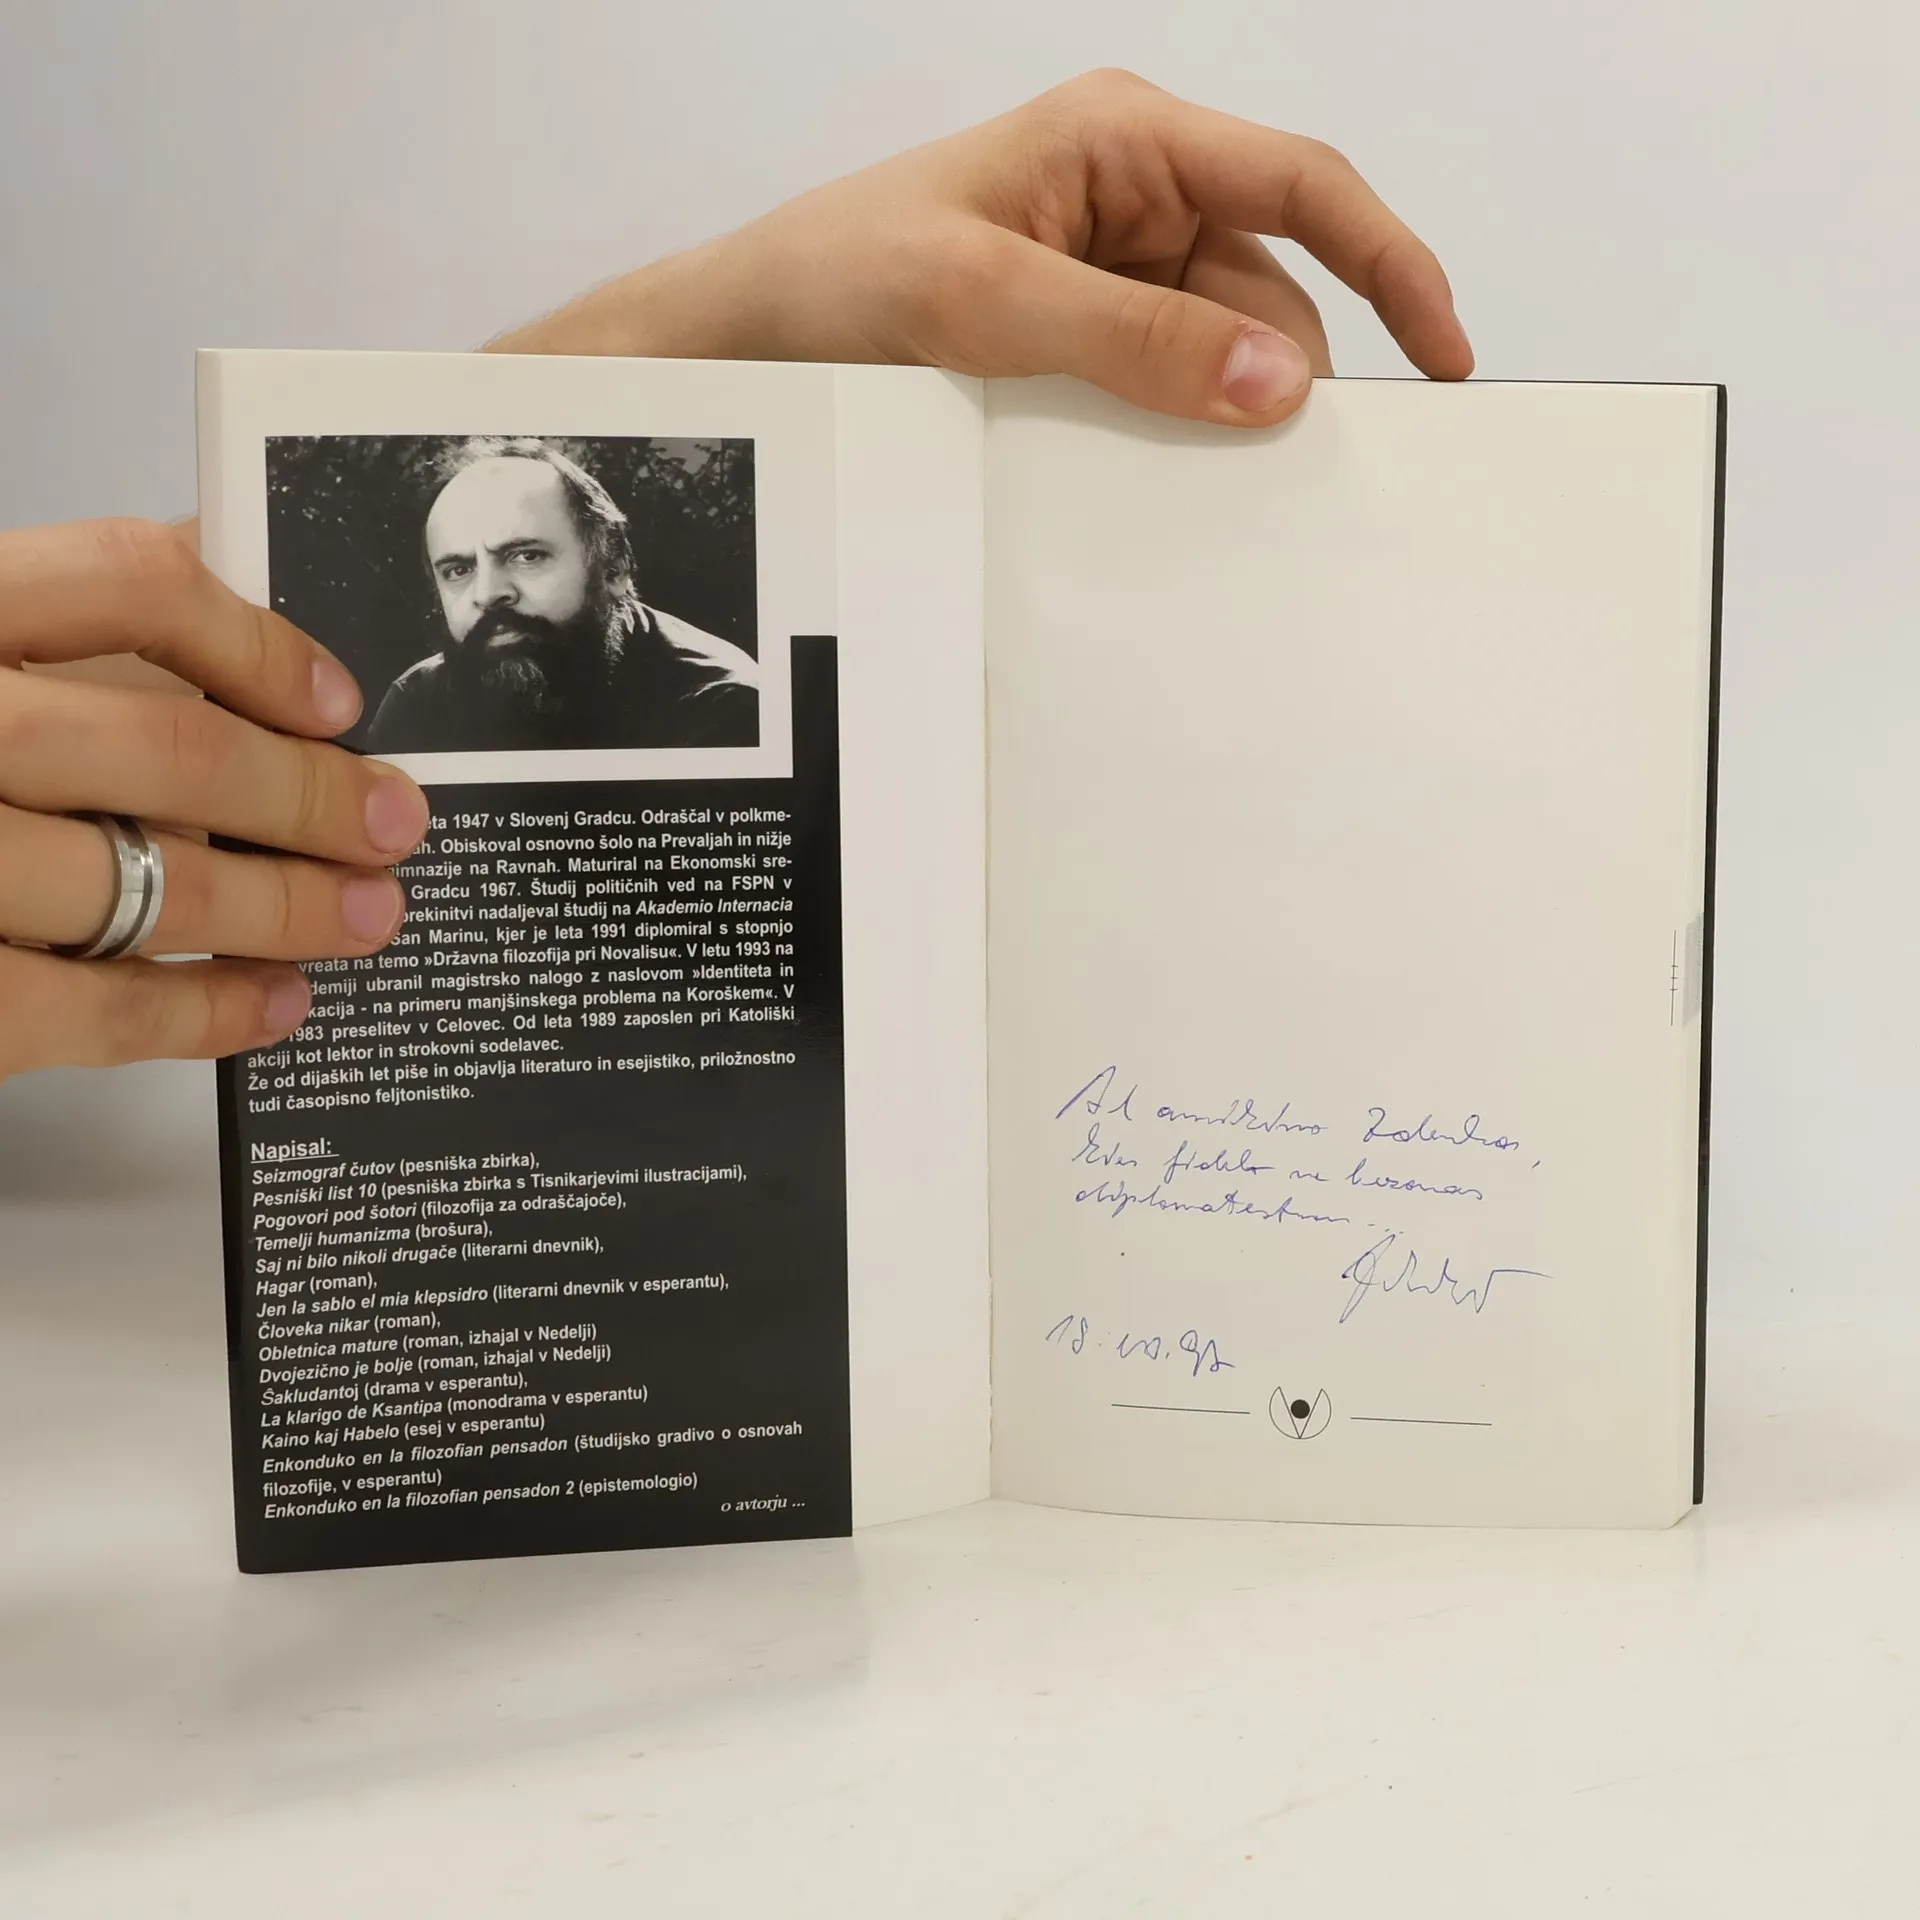 eta 1947 v Slovenj Gradcu. Odraščal v polkme-
ah. Obiskoval osnovno šolo na Prevaljah in nižje
gimnazije na Ravnah. Maturiral na Ekonomski sre-
Gradcu 1967. Študij političnih ved na FSPN v
prekinitvi nadaljeval študij na Akademio Internacia
San Marinu, kjer je leta 1991 diplomiral s stopnjo
vreata na temo »Državna filozofija pri Novalisu«. V letu 1993 na
demiji ubranil magistrsko nalogo z naslovom »Identiteta in
kacija - na primeru manjšinskega problema na Koroškem«. V
1983 preselitev v Celovec. Od leta 1989 zaposlen pri Katoliški
akciji kot lektor in strokovni sodelavec.
Že od dijaških let piše in objavlja literaturo in esejistiko, priložnostno
tudi časopisno feljtonistiko.
Napisal:
Seizmograf čutov (pesniška zbirka),
Pesniški list 10 (pesniška zbirka s Tisnikarjevimi ilustracijami),
Pogovori pod šotori (filozofija za odraščajoče),
Temelji humanizma (brošura),
Saj ni bilo nikoli drugače (literarni dnevnik),
Hagar (roman),
Jen la sablo el mia klepsidro (literarni dnevnik v esperantu),
Človeka nikar (roman),
Obletnica mature (roman, izhajal v Nedelji)
Dvojezično je bolje (roman, izhajal v Nedelji)
Ŝakludantoj (drama v esperantu),
La klarigo de Ksantipa (monodrama v esperantu)
Kaino kaj Habelo (esej v esperantu)
Enkonduko en la filozofian pensadon (študijsko gradivo o osnovah
filozofije, v esperantu)
Enkonduko en la filozofian pensadon 2 (epistemologio)
o avtorju ...
Al Zdenka,
fidela ne bezonas
diplomatestron...